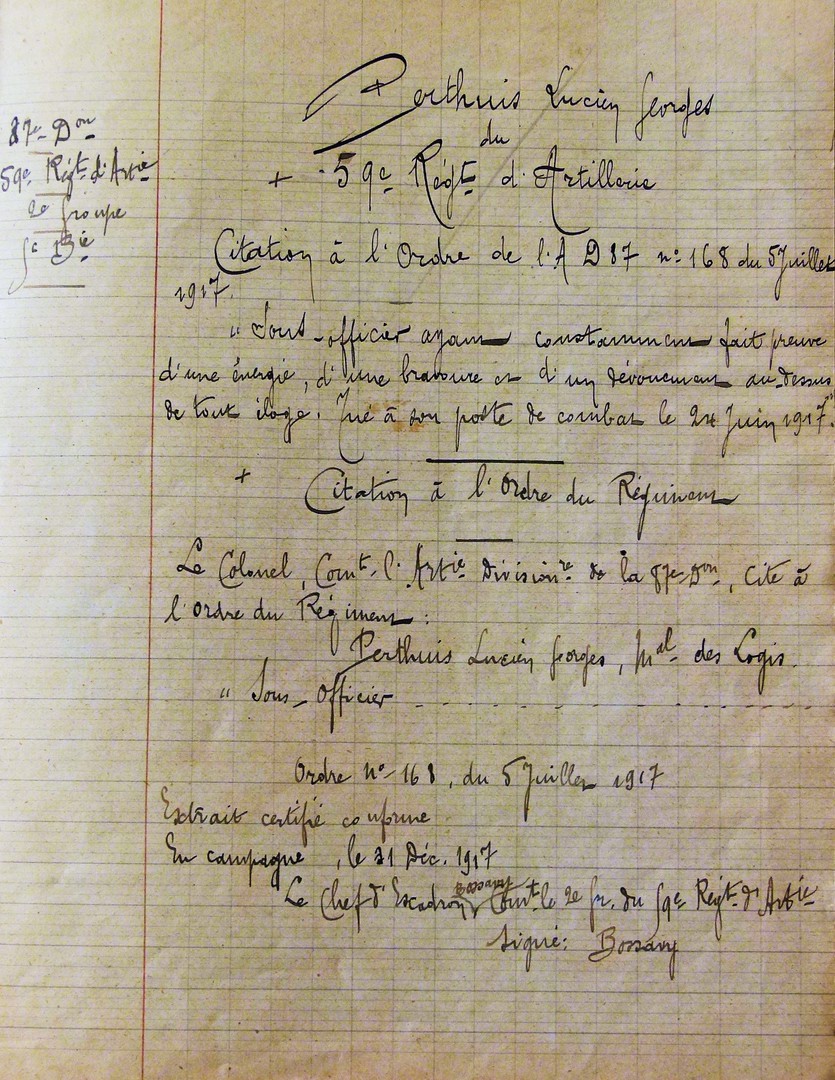 87e Don
59e Régt d'Artie
2e Groupe
5e Bie
Perthuis Lucien Georges
du
+ 59e Régt d'Artillerie
Citation à l'Ordre de l'A D 87 n° 168 du 5 Juillet
1917.
" Sous-officier ayant constamment fait preuve
d'une énergie, d'une bravoure et d'un dévouement au-dessus
de tout éloge. Tué à son poste de combat le 24 Juin 1917."
+ Citation à l'Ordre du Régiment
Le Colonel, Comt l'Artie Divisionre de la 87e Don, Cite à
l'ordre du Régiment :
Perthuis Lucien Georges, Mal des Logis.
" Sous-Officier - - - - - - - - - -
Ordre n° 168, du 5 Juillet 1917
Extrait certifié conforme
En campagne, le 31 Déc. 1917
Le Chef d'Escadron Comt le 2e Gr. du 59e Régt d'Artie
Signé: Bossavy